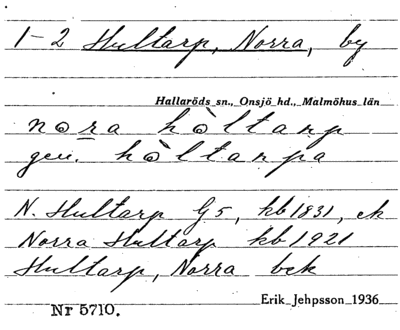 1-2 Hultarp, Norra, by
Hallaröds sn., Onsjö hd., Malmöhus län
nora hòltarp
gen. hòltarpa
N. Hultarp G5, kb 1831, ek
Norra Hultarp kb 1921
Hultarp, Norra bek
Erik Jehpsson 1936
Nr 5710.